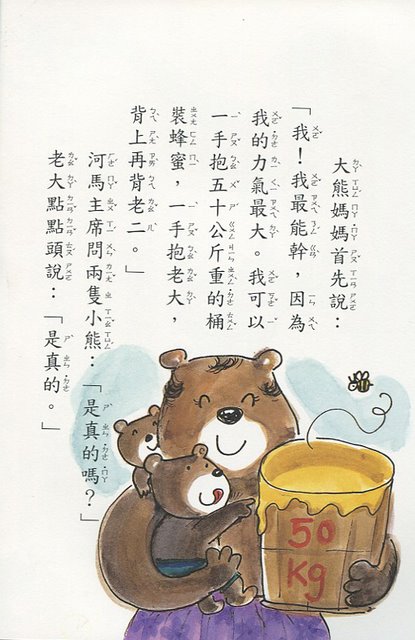 大熊媽媽首先說：
「我！我最能幹，因為
我的力氣最大。我可以
一手抱五十公斤重的桶
裝蜂蜜，一手抱老大，
背上再背老二。」
河馬主席問兩隻小熊：「是真的嗎？」
老大點點頭說：「是真的。」
50
Kg